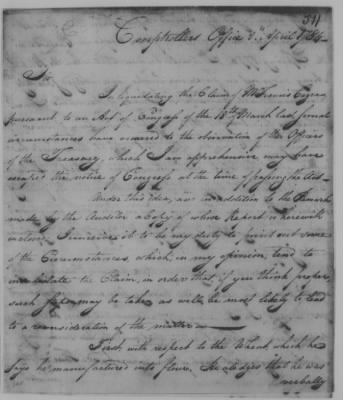 311
Comptrollers Office 3d April 1814
Sir
In liquidating the Claim of
pursuant to an Act of Congress of the 18th March last, several
circumstances have occurred to the observation of the Officers
of the Treasury, which I am apprehensive may have
escaped the notice of Congress at the time of passing the Act.
Under this idea, and in addition to the Remarks
made by the Auditor a Copy of whose Report is herewith
inclosed, I conceive it to be my duty to point out some
of the Circumstances, which, in my opinion, tend to
invalidate the Claim, in order that, if you think proper,
such steps may be taken as will be most likely to lead
to a reconsideration of the matter.
First, with respect to the Wheat, which he
says he manufactured into flour. He alledges that he was
verbally